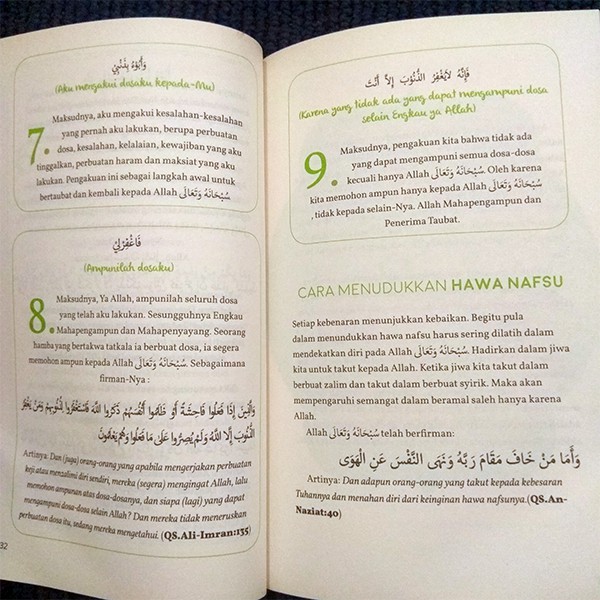 وَأَبُوْءُ بِذَنْبِيْ
(Aku mengakui dosaku kepada-Mu)
7.
Maksudnya, aku mengakui kesalahan-kesalahan
yang pernah aku lakukan, berupa perbuatan
dosa, kesalahan, kelalaian, kewajiban yang aku
tinggalkan, perbuatan haram dan maksiat yang aku
lakukan. Pengakuan ini sebagai langkah awal untuk
bertaubat dan kembali kepada Allah سُبْحَانَهُ وَتَعَالَى.
فَاغْفِرْلِيْ
(Ampunilah dosaku)
8.
Maksudnya, Ya Allah, ampunilah seluruh dosa
yang telah aku lakukan. Sesungguhnya Engkau
Mahapengampun dan Mahapenyayang. Seorang
hamba yang bertakwa tatkala ia berbuat dosa, ia segera
memohon ampun kepada Allah سُبْحَانَهُ وَتَعَالَى. Sebagaimana
firman-Nya :
وَالَّذِينَ إِذَا فَعَلُوا فَاحِشَةً أَوْ ظَلَمُوا أَنْفُسَهُمْ ذَكَرُوا اللَّهَ فَاسْتَغْفَرُوا لِذُنُوبِهِمْ وَمَنْ يَغْفِرُ
الذُّنُوبَ إِلَّا اللَّهُ وَلَمْ يُصِرُّوا عَلَى مَا فَعَلُوا وَهُمْ يَعْلَمُونَ
Artinya: Dan (juga) orang-orang yang apabila mengerjakan perbuatan
keji atau menzalimi diri sendiri, mereka (segera) mengingat Allah, lalu
memohon ampunan atas dosa-dosanya, dan siapa (lagi) yang dapat
mengampuni dosa-dosa selain Allah? Dan mereka tidak meneruskan
perbuatan dosa itu, sedang mereka mengetahui. (QS.Ali-Imran:135)
32
فَإِنَّهُ لاَيَغْفِرُ الذُّنُوْبَ إِلاَّ أَنْتَ
(Karena yang tidak ada yang dapat mengampuni dosa
selain Engkau ya Allah)
9.
Maksudnya, pengakuan kita bahwa tidak ada
yang dapat mengampuni semua dosa-dosa
kecuali hanya Allah سُبْحَانَهُ وَتَعَالَى. Oleh karena
kita memohon ampun hanya kepada Allah سُبْحَانَهُ وَتَعَالَى
, tidak kepada selain-Nya. Allah Mahapengampun dan
Penerima Taubat.
CARA MENUDUKKAN HAWA NAFSU
Setiap kebenaran menunjukkan kebaikan. Begitu pula
dalam menundukkan hawa nafsu harus sering dilatih dalam
mendekatkan diri pada Allah سُبْحَانَهُ وَتَعَالَى. Hadirkan dalam jiwa
kita untuk takut kepada Allah. Ketika jiwa kita takut dalam
berbuat zalim dan takut dalam berbuat syirik. Maka akan
mempengaruhi semangat dalam beramal saleh hanya karena
Allah.
Allah سُبْحَانَهُ وَتَعَالَى telah berfirman:
وَأَمَا مَنْ خَافَ مَقَامَ رَبِّهُ وَنَهَى النَّفْسَ عَنِ الْهَوَى
Artinya: Dan adapun orang-orang yang takut kepada kebesaran
Tuhannya dan menahan diri dari keinginan hawa nafsunya.(QS.An-
Naziat:40)